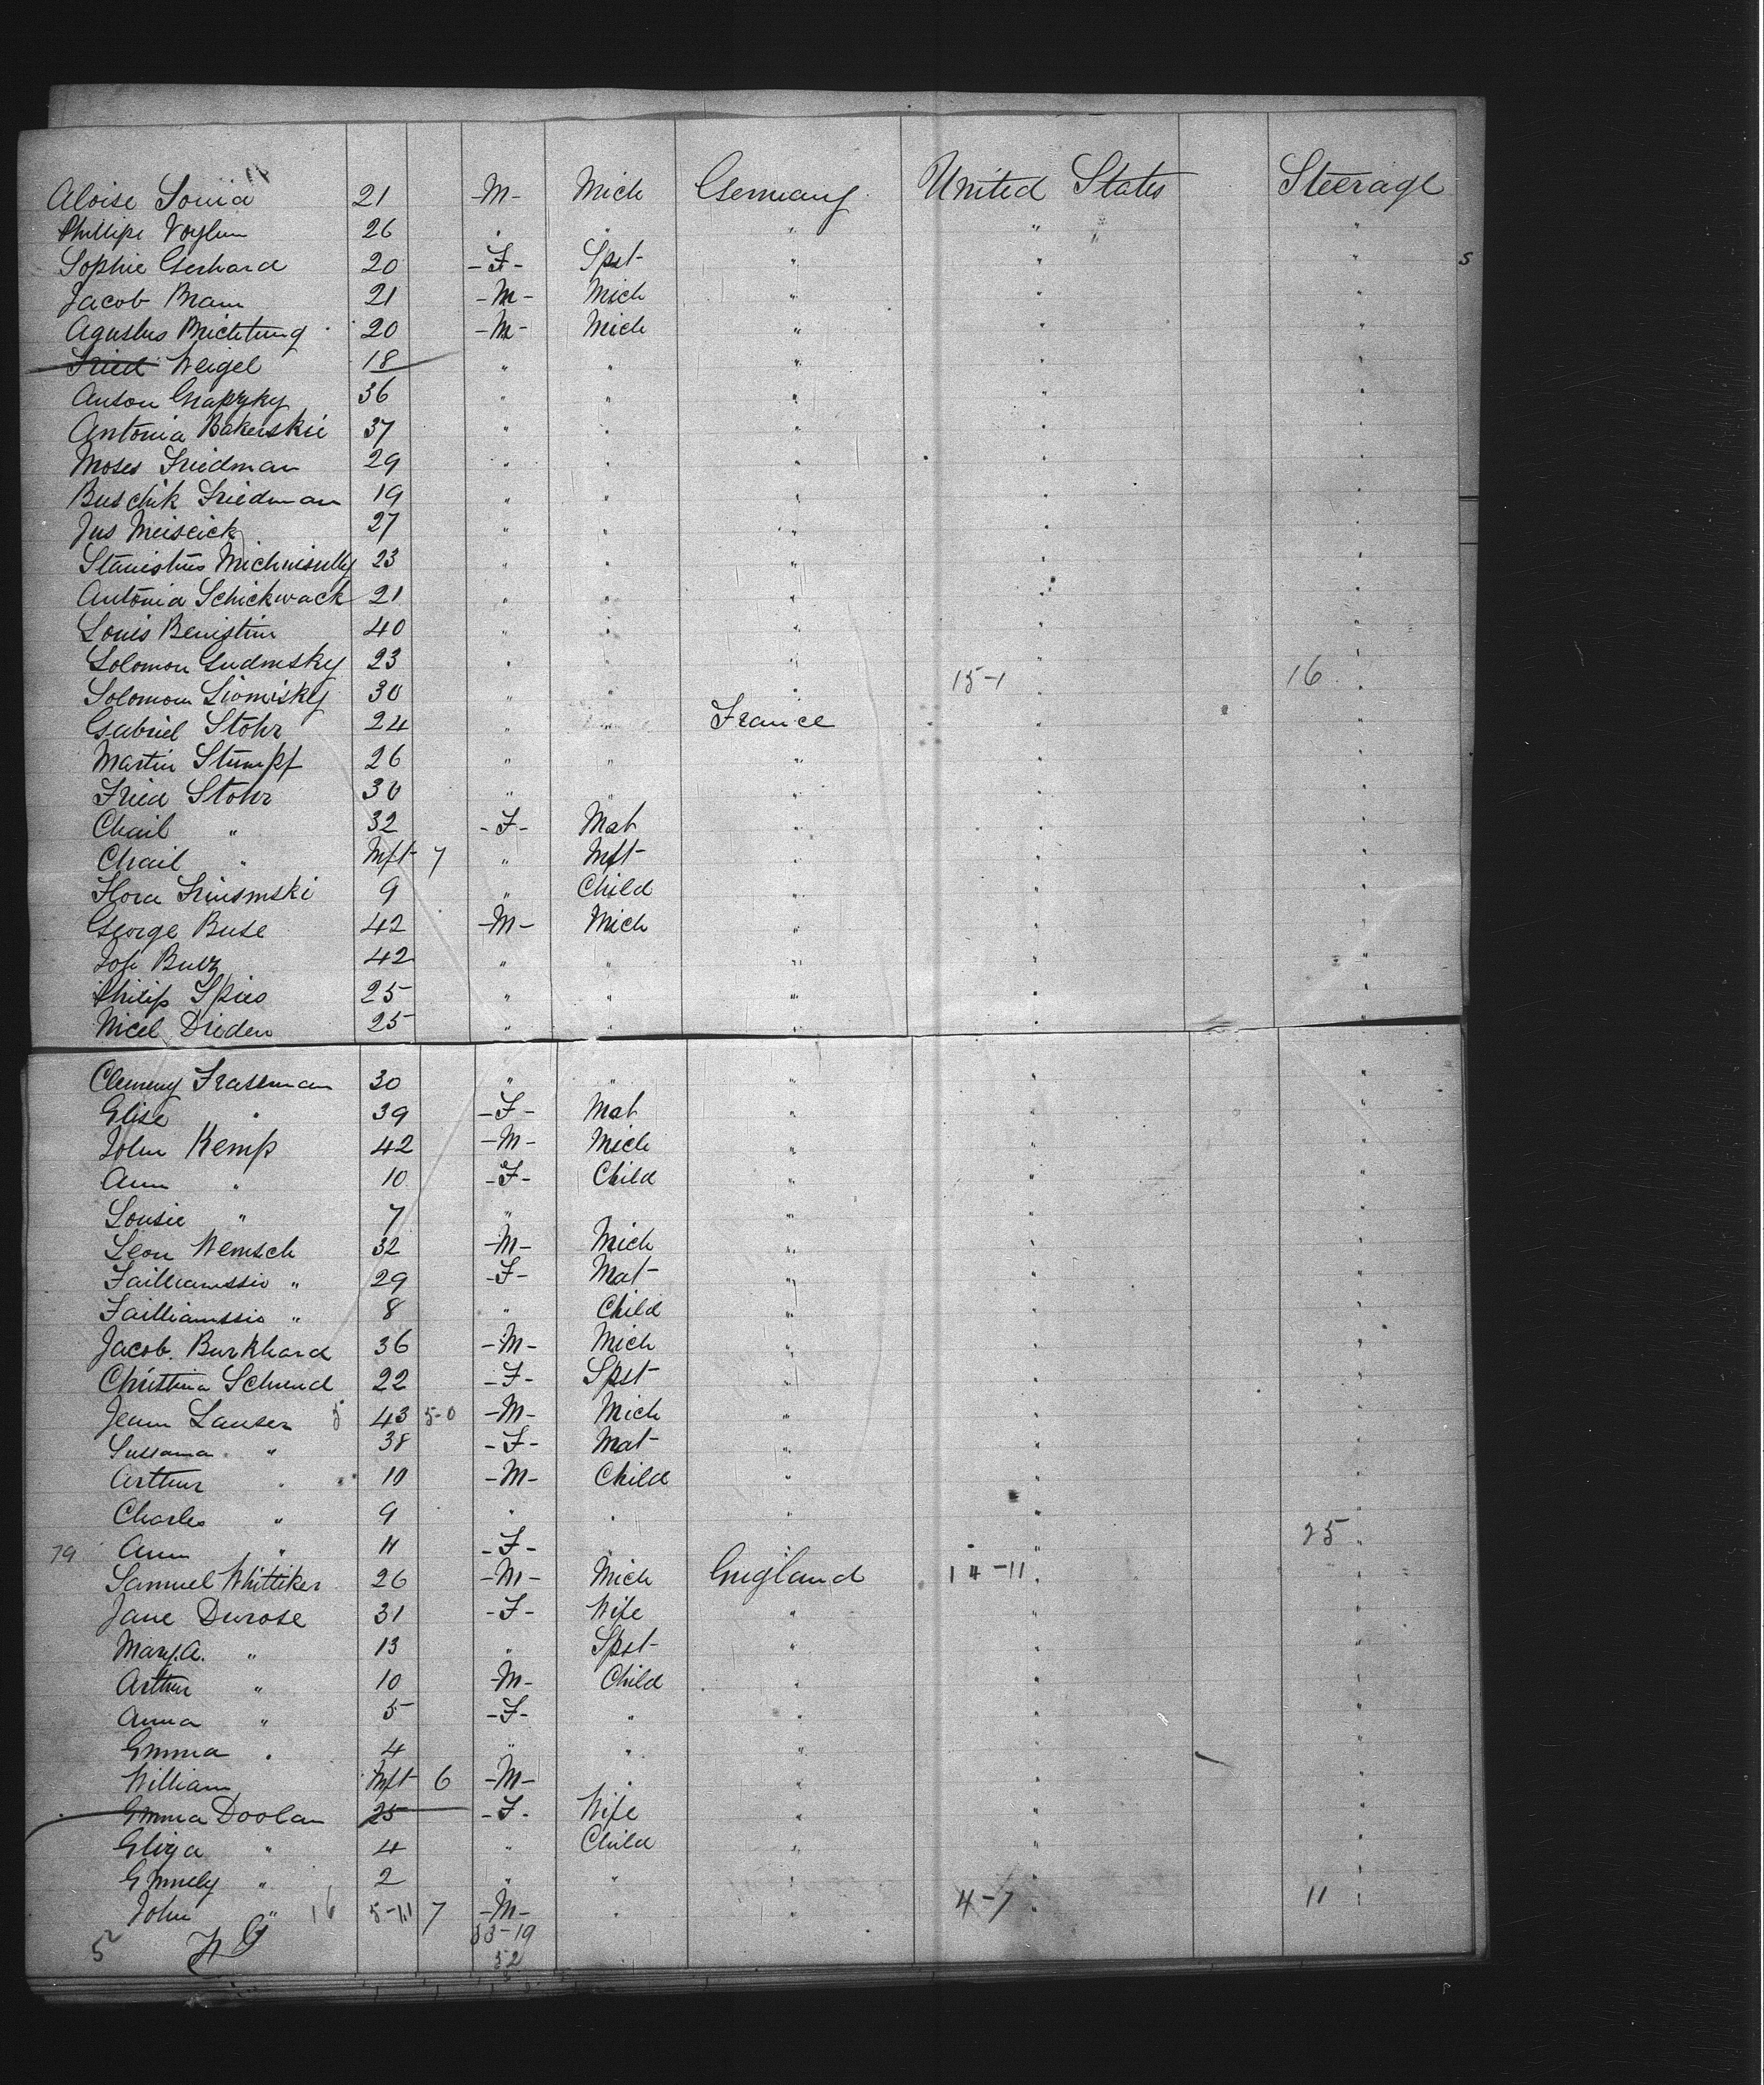 Aloise Souia 21 -M- Mich Germany United States Steerage
Phillipe Voylum 26 " " " " "
Sophie Gerhard 20 -F- Spst " " "
Jacob Bram 21 -M- Mich " " "
Agustus Michtung 20 -M- Mich " " "
Fried Weigel 18 " " " " "
Anton Grapzky 36 " " " " "
Antonia Bakerskie 37 " " " " "
Moses Friedman 29 " " " " "
Buschik Friedman 19 " " " " "
Jus Meiseick 27 " " " " "
Stanishus 23 " " " " "
Antonia Schickwack 21 " " " " "
Louis Benistim 40 " " " " "
Solomon Gudmsky 23 " " " " "
Solomon Siomisky 30 " " " 15-1 " 16 "
Gabriel Stohr 24 " " France " "
Martin Stumpf 26 " " " " "
Fried Stohr 30 " " " " "
Chail " 32 -F- Mat " " "
Chail " Inft 7 " Inft " " "
Flora Friusmski 9 " Child " " "
George Buse 42 -M- Mich " " "
Jos Butz 42 " " " " "
Philip Spies 25 " " " " "
Nicel Drieden 25 " " " " "
Clemeny Frassman 30 " " " " "
Elise " 39 -F- Mat " " "
John Kemp 42 -M- Mich " " "
Ann " 10 -F- Child " " "
Lousie " 7 " " " "
Leon Wemsch 32 -M- Mich " " "
Failliamssio " 29 -F- Mat " " "
Failliamssio " 8 " Child " " "
Jacob Burkhard 36 -M- Mich " " "
Christina Schmid 22 -F- Spst " " "
Jean Lauser 5 43 5-0 -M- Mich " " "
Sussana " 38 -F- Mat " " "
Arthur " 10 -M- Child " " "
Charles " 9 " " " " "
79 Ann " 11 -F- " " " 25 "
Samuel Whittiker 26 -M- Mich England 14-11 " "
Jane Durose 31 -F- Wife " " "
Mary A. " 13 " Spst " " "
Arthur " 10 -M- Child " " "
Anna " 5 -F- " " " "
Emma " 4 " " " " "
William Inft 6 -M- " " " "
Emma Doolan 25 -F- Wife " " "
Eliza " 4 " Child " " "
Emmely " 2 " " " " "
John " 16 5-11 7 -M- " " 4-7 " 11 "
33-19
5 52